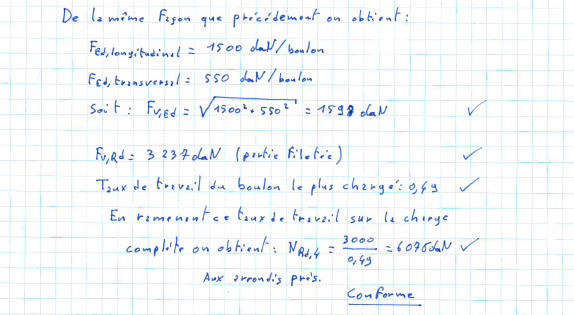 De la même façon que précédement on obtient :
FEd,longitudinal = 1500 daN/boulon
FEd,transversal = 550 daN/boulon
Soit : Fv,Ed = √1500² + 550² = 1598 daN ✓
Fv,Rd = 3 237 daN (partie filetée) ✓
Taux de travail du boulon le plus chargé : 0,49 ✓
En ramenant ce taux de travail sur la charge
complète on obtient : NRd,4 = 3000 / 0,49 = 6076 daN ✓
Aux arrondis près.
Conforme